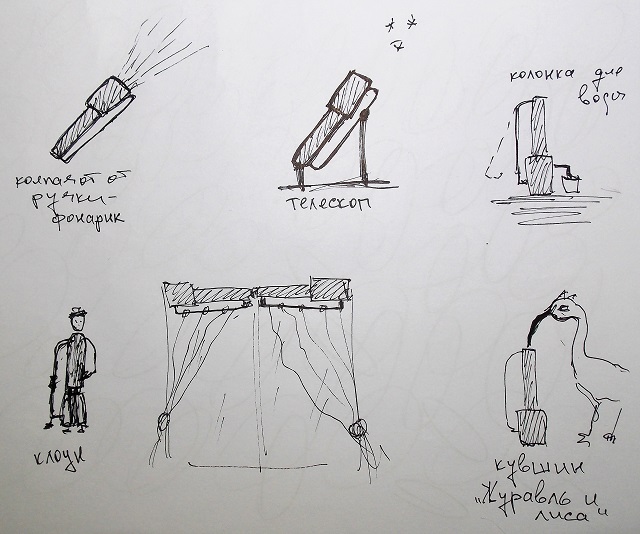 колпачок от
ручки-
фонарик
телескоп
колонка для
воды
клоун
кувшин
"Журавль и
лиса"